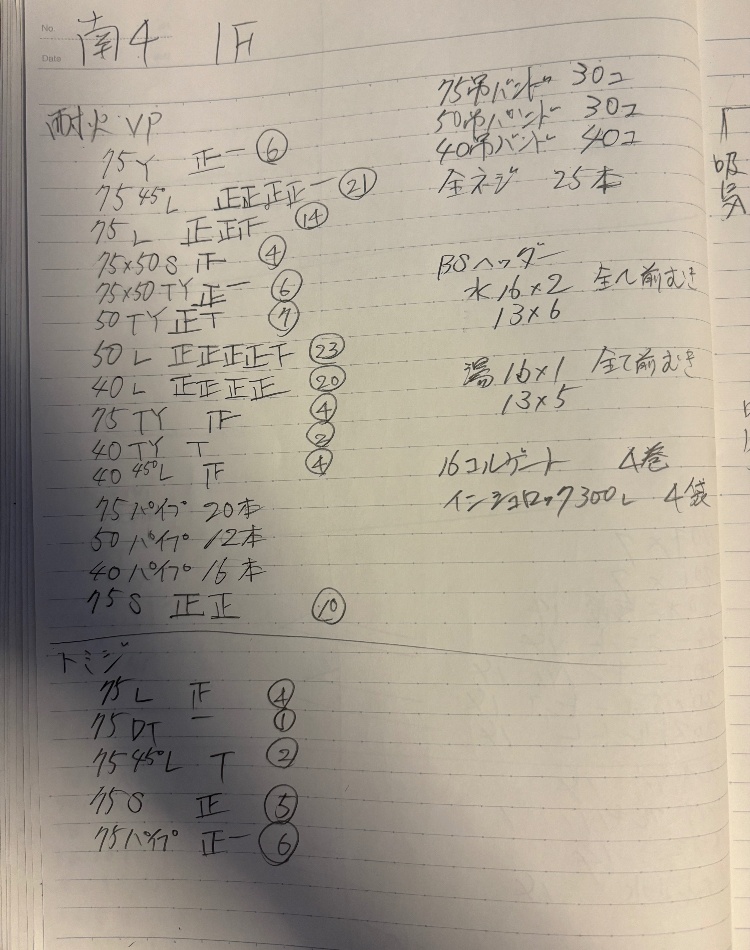 No.
Date
南4 1F
耐火VP
75Y 正一 ⑥
75 45°L 正正正正一 ㉑
75L 正正 ⑭
75×50S ④
75×50TY 正一 ⑥
50TY 正T ⑦
50L 正正正正 ㉓
40L 正正正正 ⑳
75TY ④
40TY T ②
40 45°L ④
75パイプ 20本
50パイプ 12本
40パイプ 16本
75S 正正 ⑩
トミジ
75L ④
75DT 一 ①
75 45°L T ②
75S 正 ⑤
75パイプ 正一 ⑥
75吊バンド 30コ
50吊バンド 30コ
40吊バンド 40コ
全ネジ 25本
BSヘッダー
水16×2 全て前むき
13×6
湯16×1 全て前むき
13×5
16コルゲート 4巻
インシュロック300L 4袋
吸
気